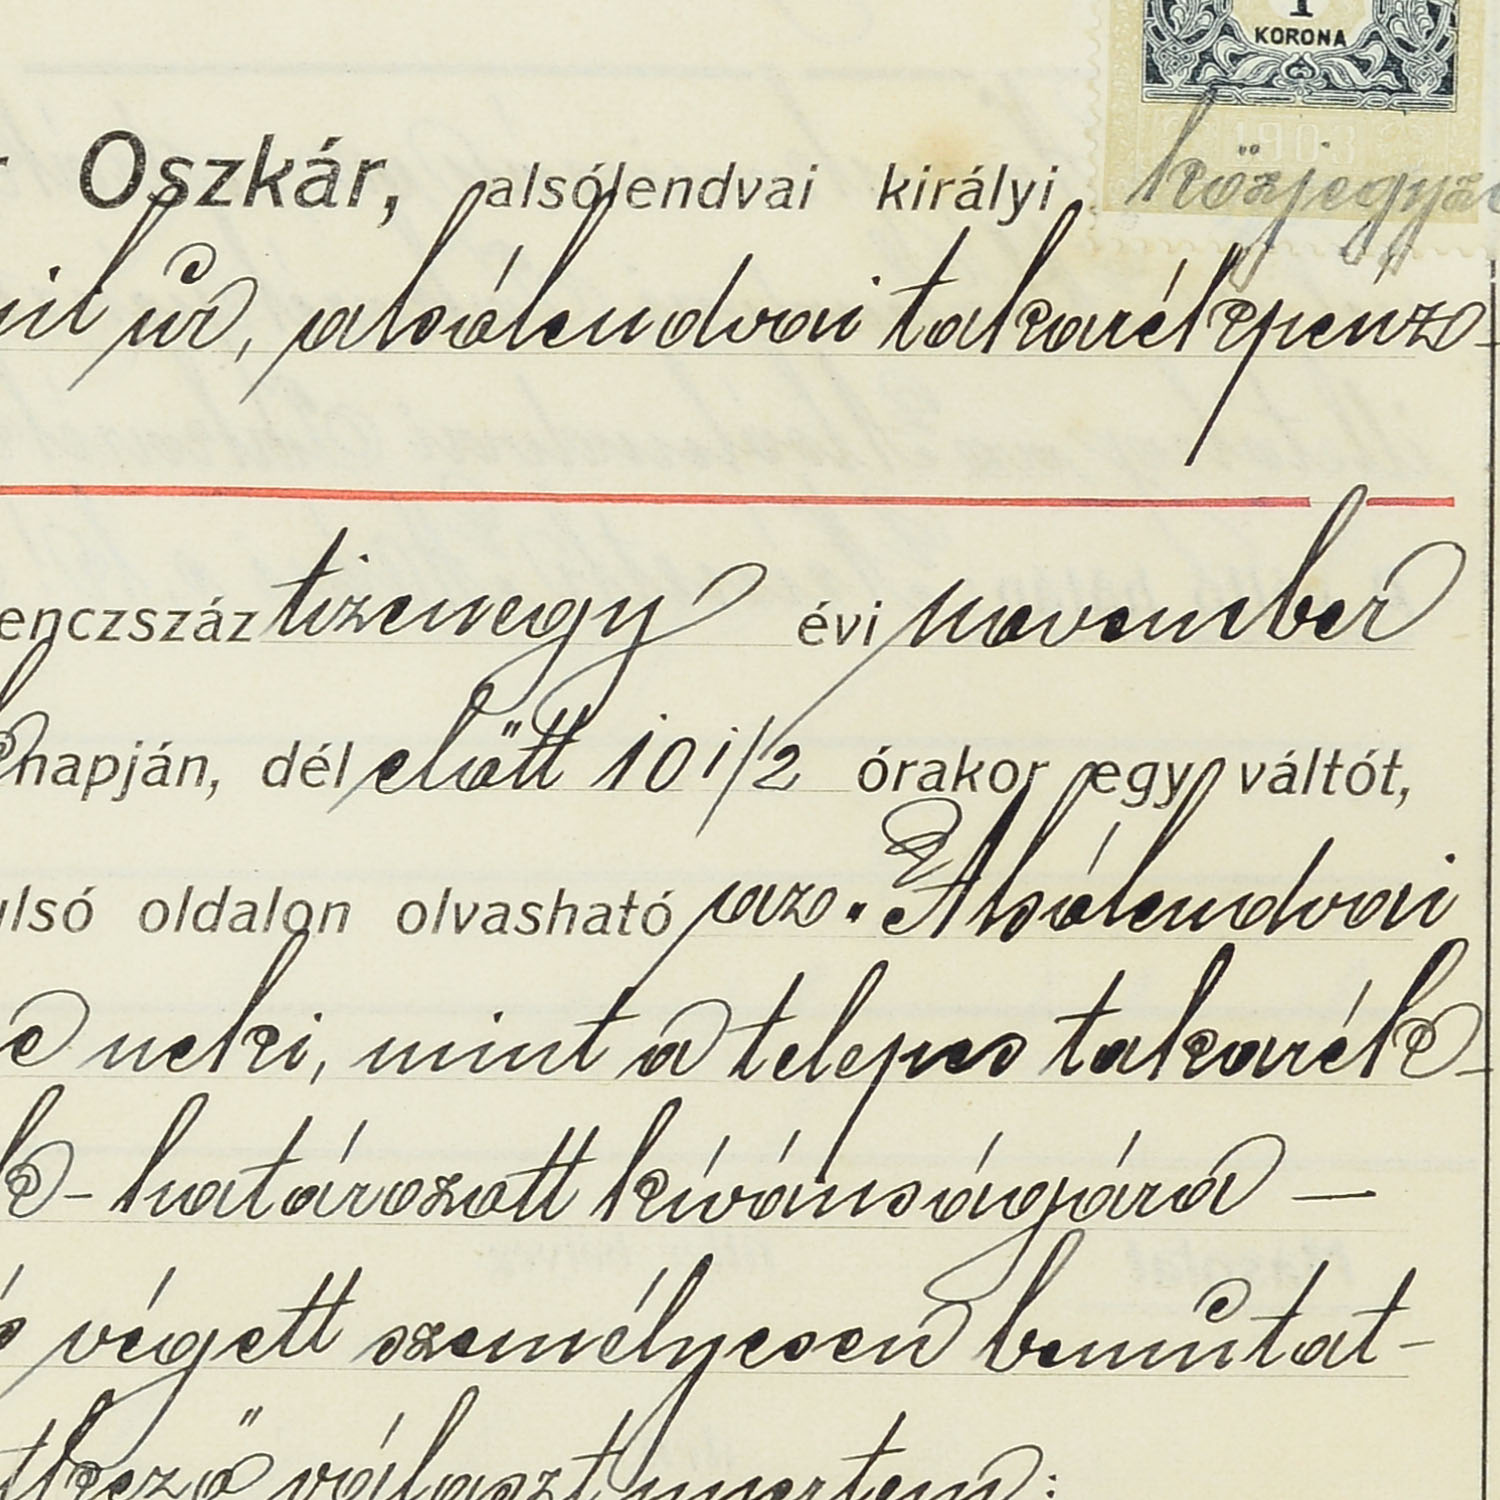 1
KORONA
1903
Oszkár, alsólendvai királyi közjegyző
úr, alsólendvai takarékpénz-
enczszáz tizenegy évi november
napján, dél előtt 10 1/2 órakor egy váltót,
ulsó oldalon olvasható az "Alsólendvai
neki, mint a telepes takarék-
- határozott kívánságára —
végett személyesen bemutat-
választ nyertem: